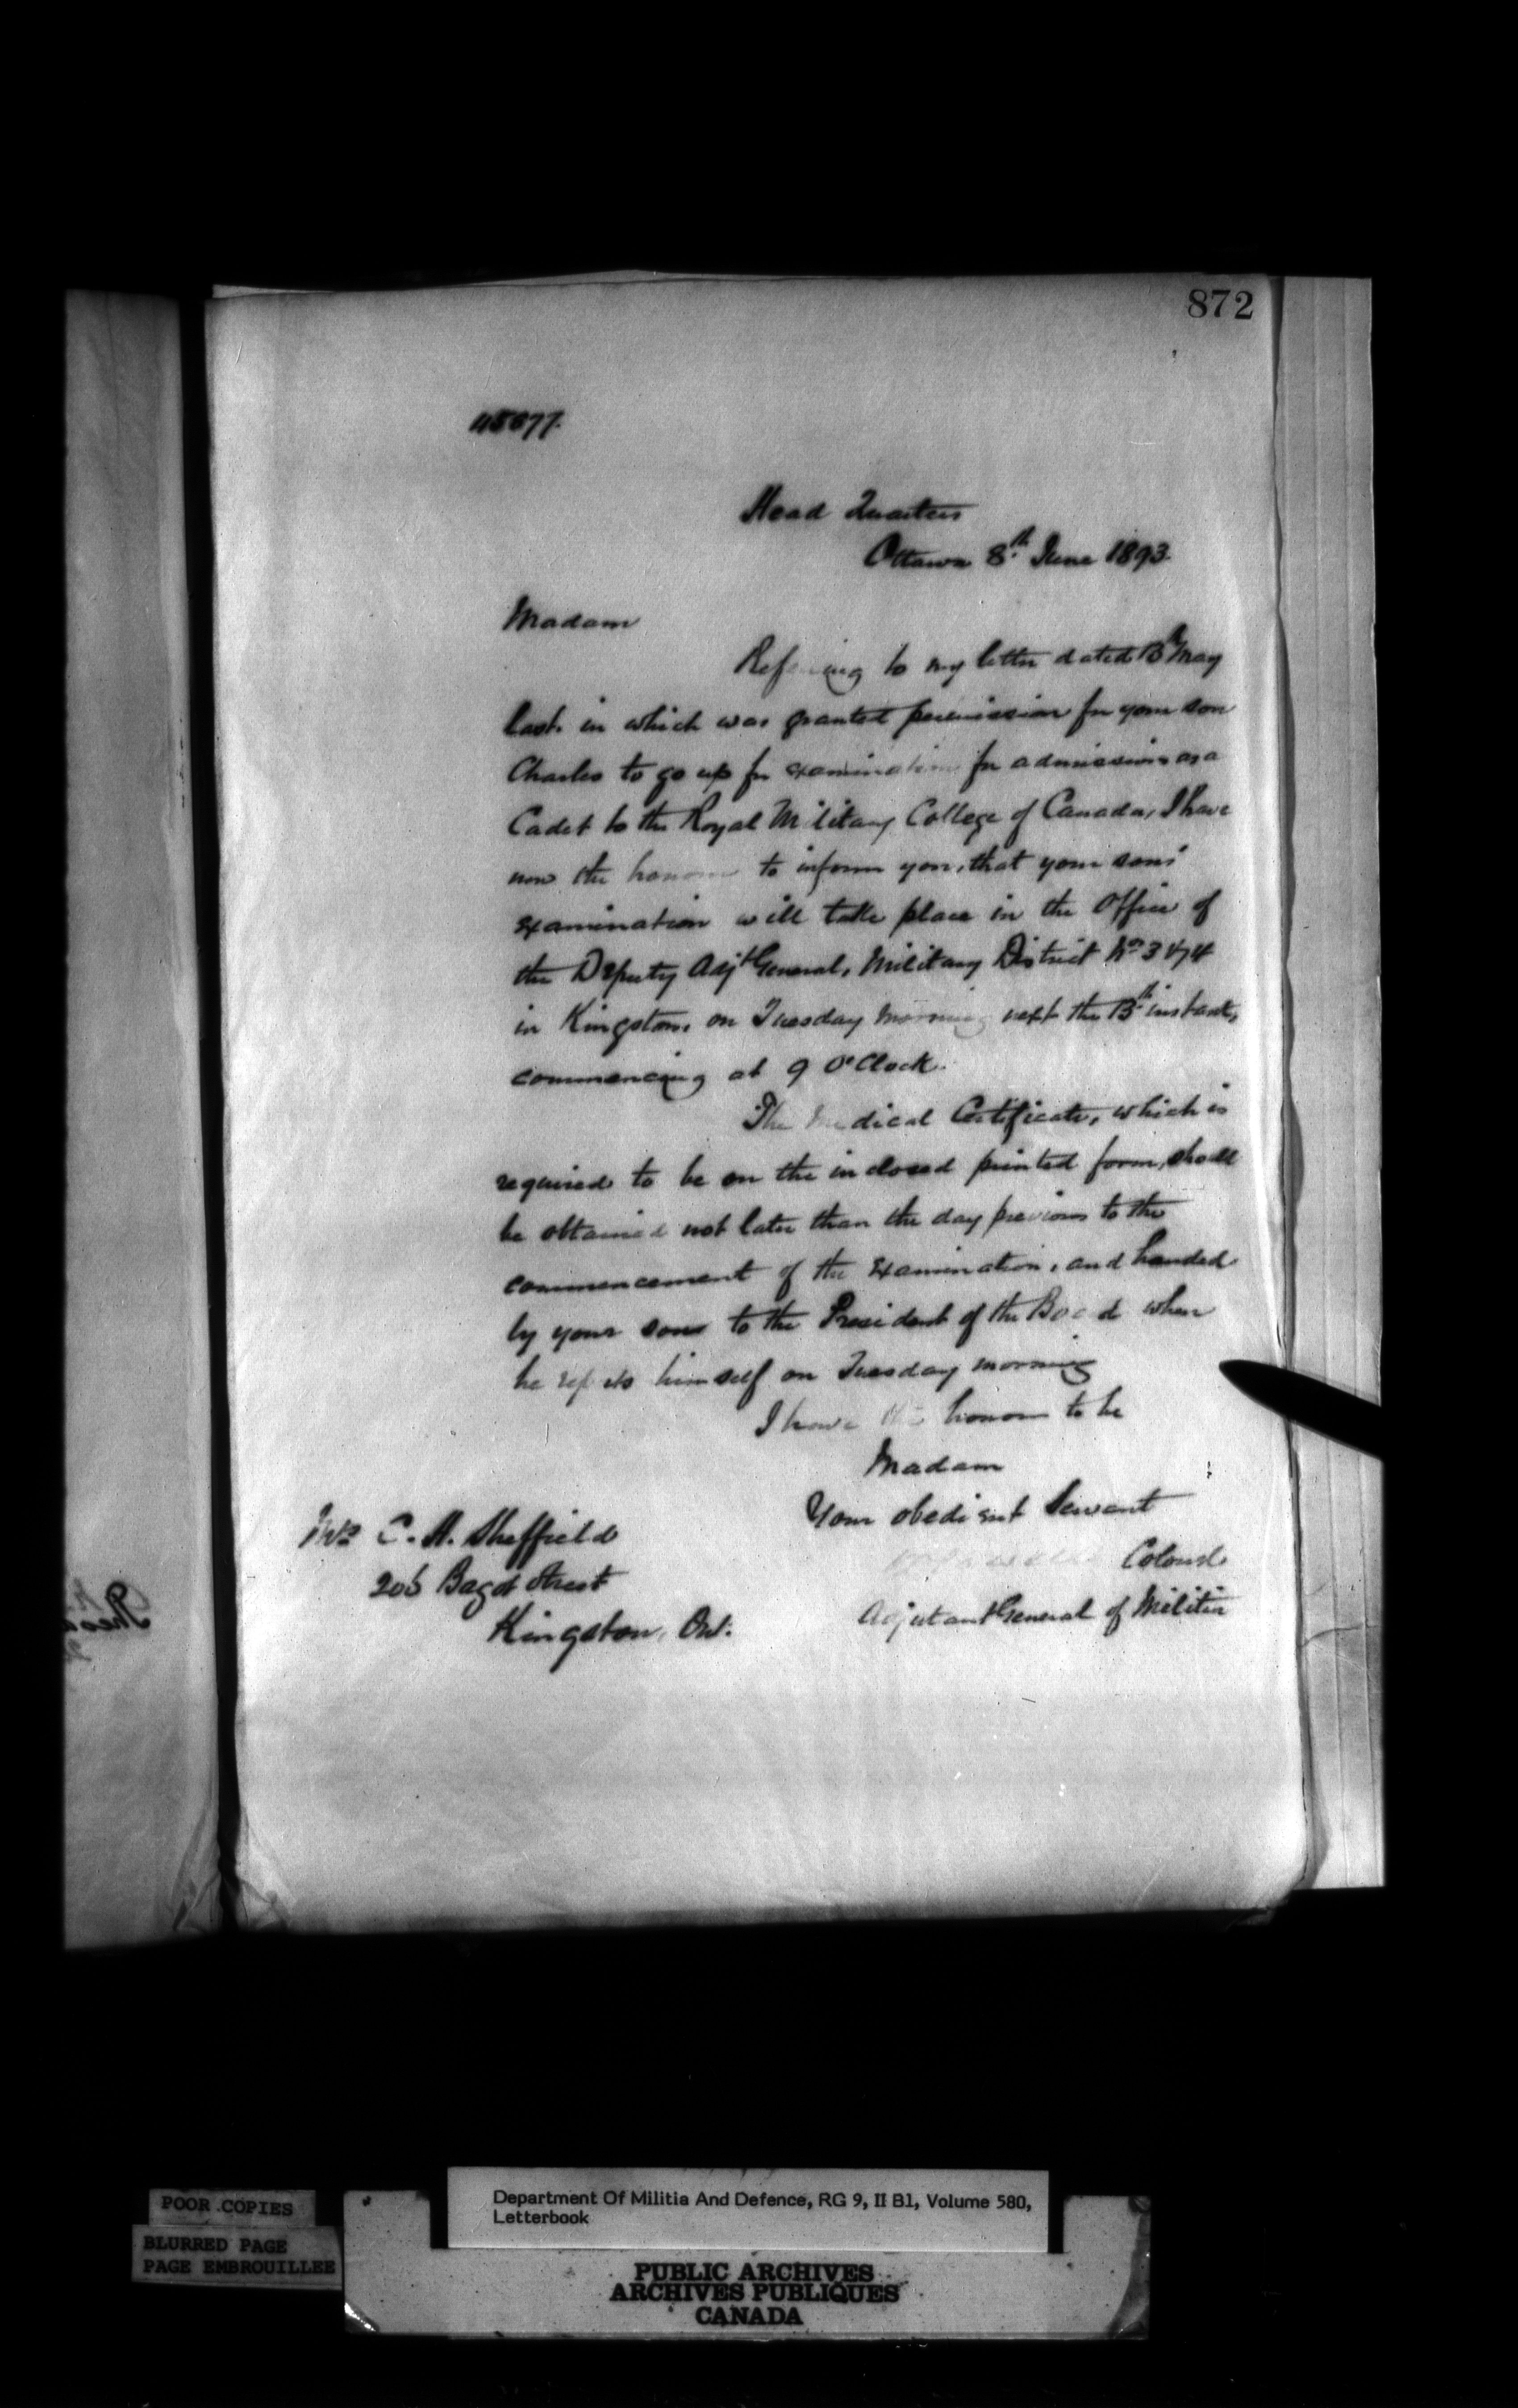 872
45877.
Head Quarters
Ottawa 8th June 1893.
Madam
Referring to my letter dated 13th May
last. in which was granted permission for your son
Charles to go up for examination for admission as a
Cadet to the Royal Military College of Canada, I have
now the honour to inform you, that your sons'
examination will take place in the Office of
the Deputy Adjt General, Military District No 3 & 4
in Kingston, on Tuesday morning next the 13th instant,
commencing at 9 O'Clock.
The Medical Certificate, which is
required to be on the inclosed printed form, shall
be obtained not later than the day previous to the
commencement of the examination, and handed
by your son to the President of the Board when
he reports himself on Tuesday morning
I have the honour to be
Madam
Your obedient Servant
Colonel
Adjutant General of Militia
Mrs C. H. Sheffield
Bagot Street
Kingston, Ont.
POOR COPIES
BLURRED PAGE
PAGE EMBROUILLEE
Department Of Militia And Defence, RG 9, II B1, Volume 580,
Letterbook
PUBLIC ARCHIVES
ARCHIVES PUBLIQUES
CANADA